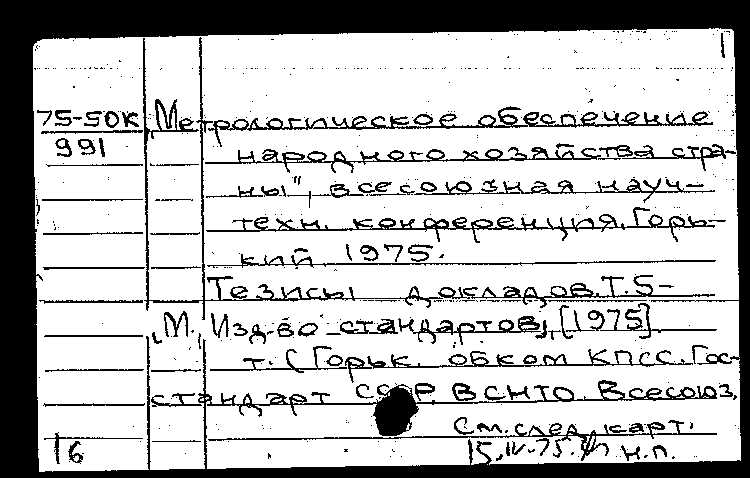 75-50К „Метрологическое обеспечение
991 народного хозяйства стра-
ны", всесоюзная науч-
техн. конференция. Горь-
кий 1975.
Тезисы докладов. Т. 5-
„М., Изд-во стандартов„ [1975].
т. (Горьк. обком КПСС. Гос-
стандарт СССР. ВСНТО. Всесоюз.
См. след. карт.
16 15.IV-75. н.п.